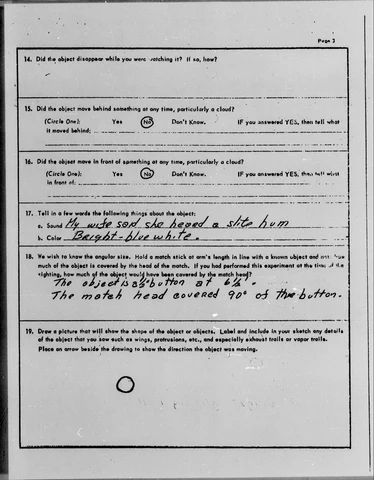 Page 3
14. Did the object disappear while you were watching it? If so, how?
15. Did the object move behind something at any time, particularly a cloud?
(Circle One): Yes No Don't Know. IF you answered YES, then tell what
it moved behind:
16. Did the object move in front of something at any time, particularly a cloud?
(Circle One): Yes No Don't Know. IF you answered YES, then tell what
in front of:
17. Tell in a few words the following things about the object:
a. Sound My wife said she heard a slite hum
b. Color Bright-blue white.
18. We wish to know the angular size. Hold a match stick at arm's length in line with a known object and note how
much of the object is covered by the head of the match. If you had performed this experiment at the time of the
sighting, how much of the object would have been covered by the match head?
The object is button at
The match head covered 90° of the button.
19. Draw a picture that will show the shape of the object or objects. Label and include in your sketch any details
of the object that you saw such as wings, protrusions, etc., and especially exhaust trails or vapor trails.
Place an arrow beside the drawing to show the direction the object was moving.